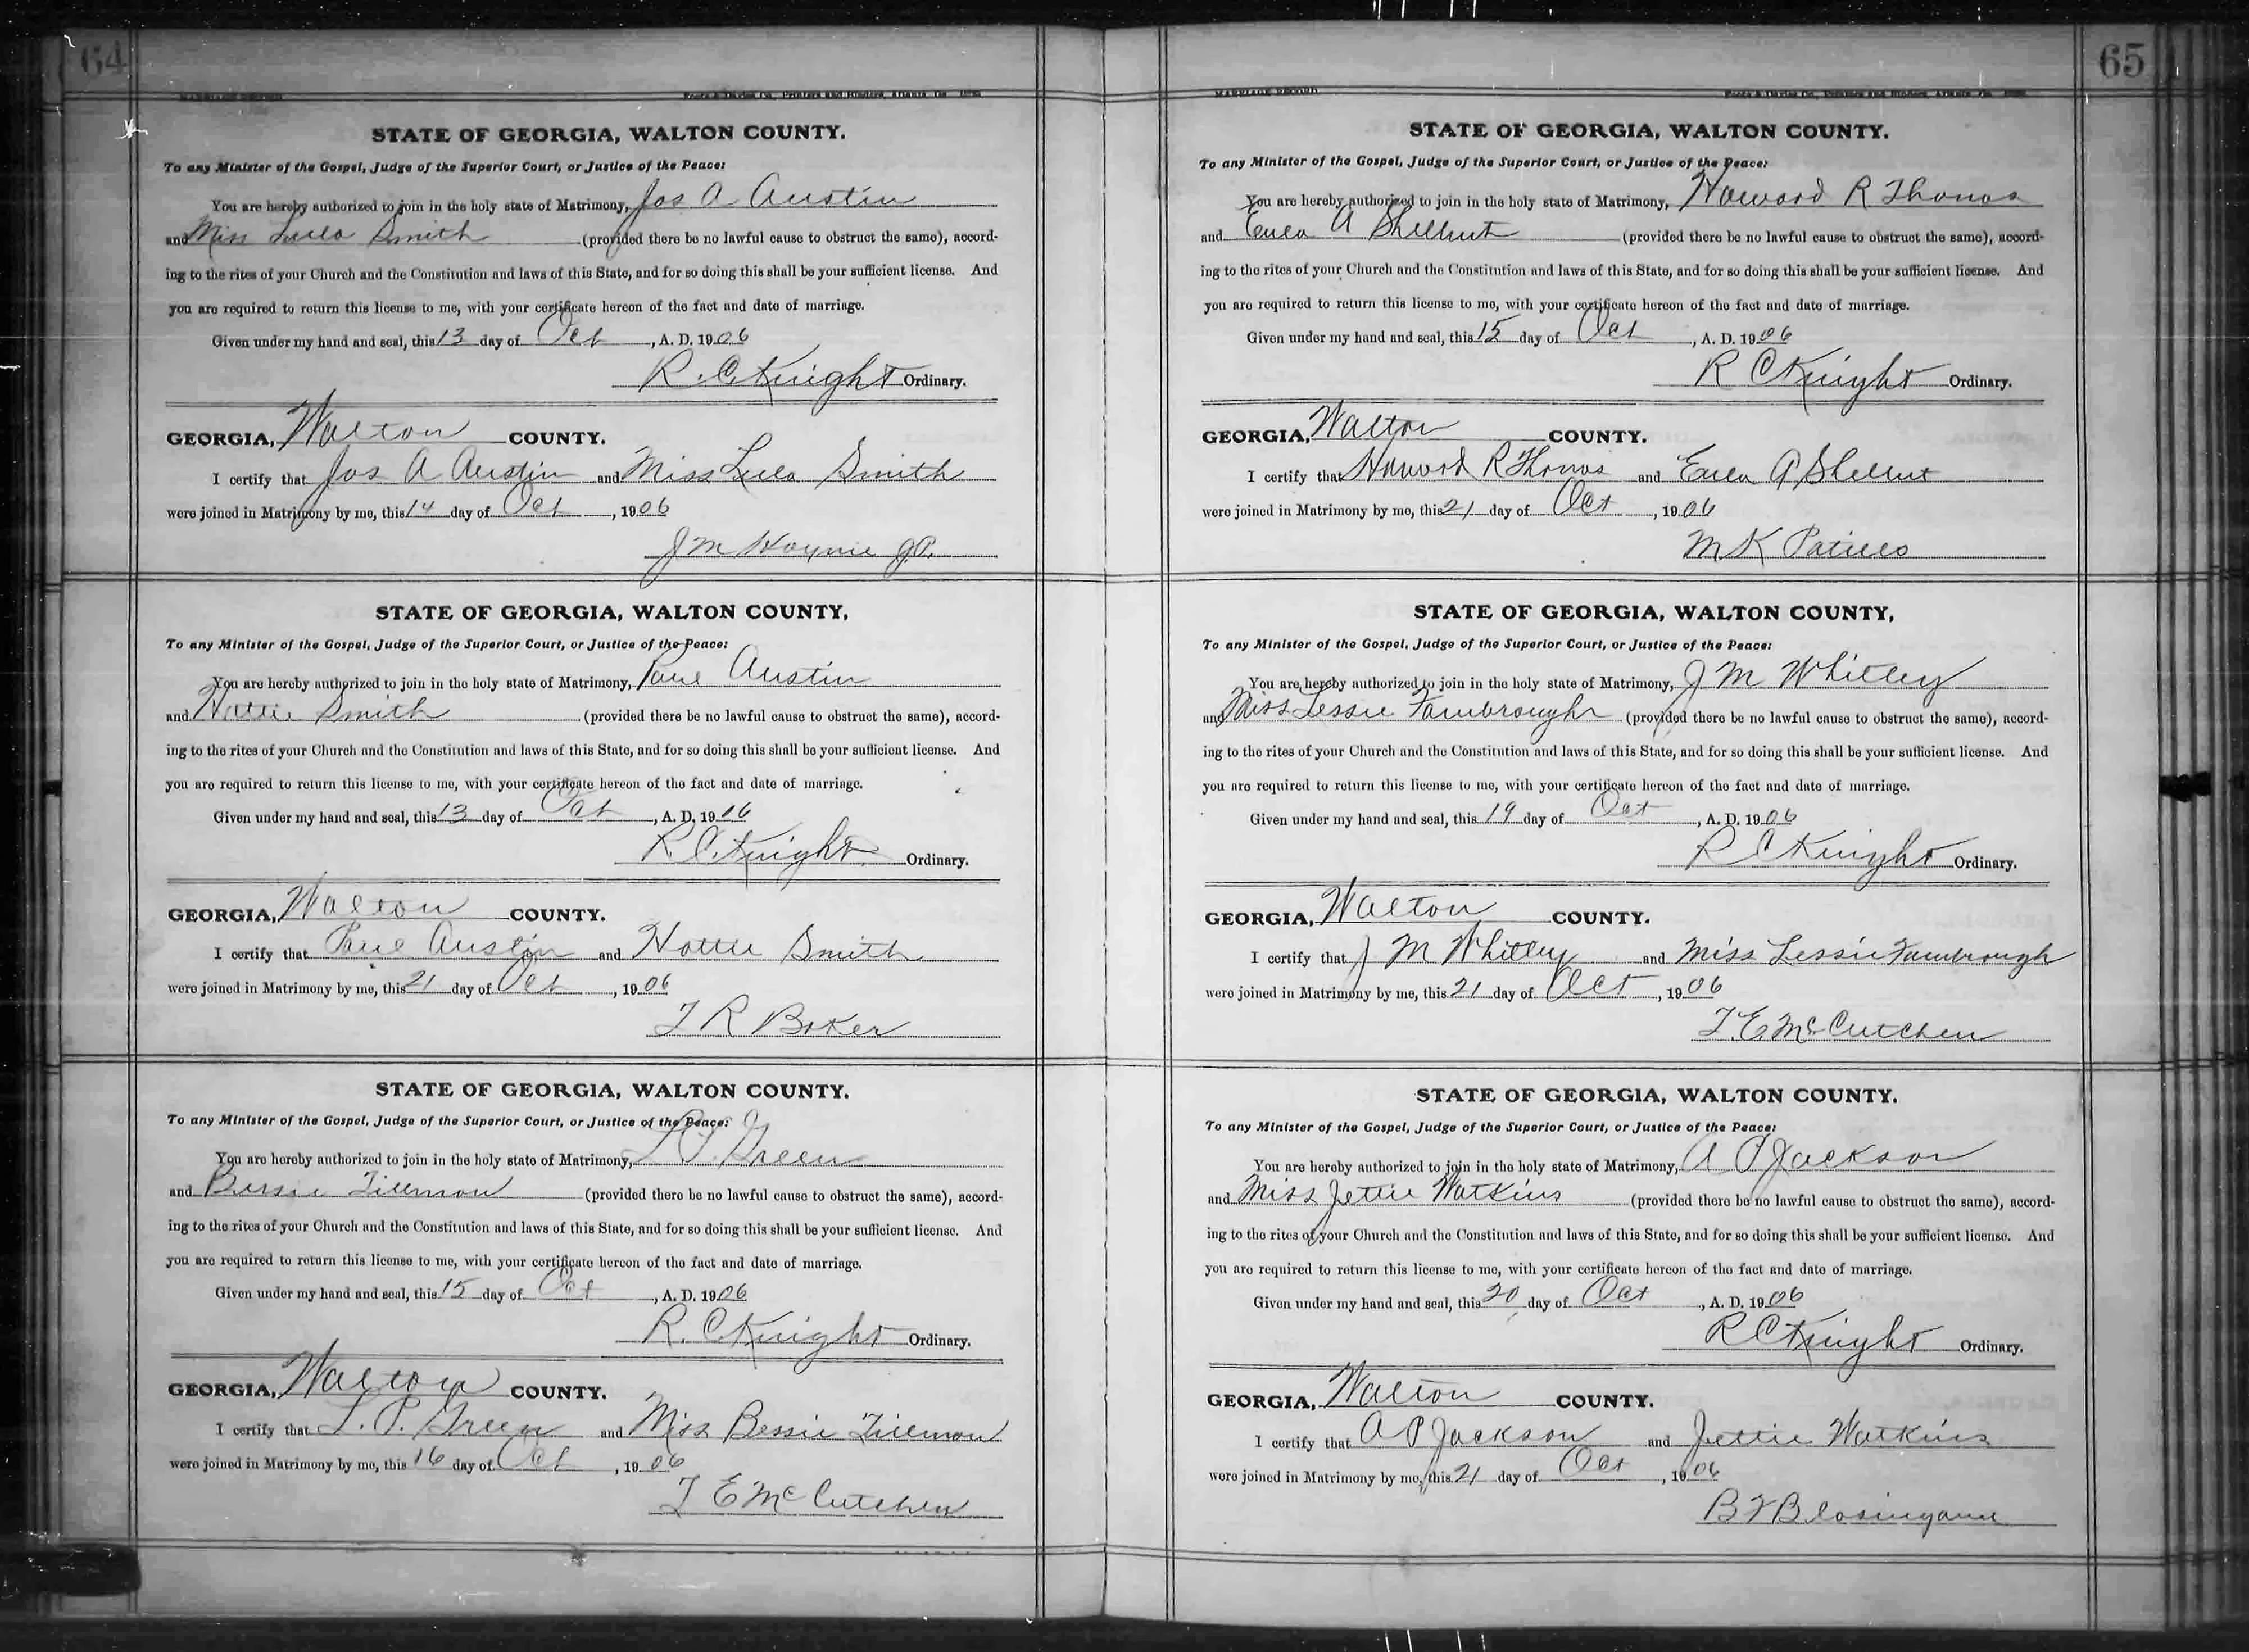 64
MARRIAGE RECORD Foote & Davies Co., Printers and Binders, Atlanta, Ga.
STATE OF GEORGIA, WALTON COUNTY.
To any Minister of the Gospel, Judge of the Superior Court, or Justice of the Peace:
You are hereby authorized to join in the holy state of Matrimony, Jos A Austin
and Miss Lula Smith (provided there be no lawful cause to obstruct the same), accord-
ing to the rites of your Church and the Constitution and laws of this State, and for so doing this shall be your sufficient license. And
you are required to return this license to me, with your certificate hereon of the fact and date of marriage.
Given under my hand and seal, this 13 day of Oct, A. D. 1906
R. C. Knight Ordinary.
GEORGIA, Walton COUNTY.
I certify that Jos A Austin and Miss Lula Smith
were joined in Matrimony by me, this 14 day of Oct, 1906
J M Haynie J.P.
STATE OF GEORGIA, WALTON COUNTY,
To any Minister of the Gospel, Judge of the Superior Court, or Justice of the Peace:
You are hereby authorized to join in the holy state of Matrimony, Paul Austin
and Hattie Smith (provided there be no lawful cause to obstruct the same), accord-
ing to the rites of your Church and the Constitution and laws of this State, and for so doing this shall be your sufficient license. And
you are required to return this license to me, with your certificate hereon of the fact and date of marriage.
Given under my hand and seal, this 13 day of Oct, A. D. 1906
R. C. Knight Ordinary.
GEORGIA, Walton COUNTY.
I certify that Paul Austin and Hattie Smith
were joined in Matrimony by me, this 21 day of Oct, 1906
T R Baker
STATE OF GEORGIA, WALTON COUNTY.
To any Minister of the Gospel, Judge of the Superior Court, or Justice of the Peace:
You are hereby authorized to join in the holy state of Matrimony, Green
and Bessie Tillman (provided there be no lawful cause to obstruct the same), accord-
ing to the rites of your Church and the Constitution and laws of this State, and for so doing this shall be your sufficient license. And
you are required to return this license to me, with your certificate hereon of the fact and date of marriage.
Given under my hand and seal, this 15 day of Oct, A. D. 1906
R. C Knight Ordinary.
GEORGIA, Walton COUNTY.
I certify that L. P. Green and Miss Bessie Tillman
were joined in Matrimony by me, this 16 day of Oct, 1906
T E McCutchen
65
MARRIAGE RECORD Foote & Davies Co., Printers and Binders, Atlanta, Ga.
STATE OF GEORGIA, WALTON COUNTY.
To any Minister of the Gospel, Judge of the Superior Court, or Justice of the Peace:
You are hereby authorized to join in the holy state of Matrimony, Howard R Thomas
and Eula A Shellnut (provided there be no lawful cause to obstruct the same), accord-
ing to the rites of your Church and the Constitution and laws of this State, and for so doing this shall be your sufficient license. And
you are required to return this license to me, with your certificate hereon of the fact and date of marriage.
Given under my hand and seal, this 15 day of Oct, A. D. 1906
R C Knight Ordinary.
GEORGIA, Walton COUNTY.
I certify that Howard R Thomas and Eula A Shellnut
were joined in Matrimony by me, this 21 day of Oct, 1906
M K Patillo
STATE OF GEORGIA, WALTON COUNTY,
To any Minister of the Gospel, Judge of the Superior Court, or Justice of the Peace:
You are hereby authorized to join in the holy state of Matrimony, J M Whitley
and Miss Lessie Fambrough (provided there be no lawful cause to obstruct the same), accord-
ing to the rites of your Church and the Constitution and laws of this State, and for so doing this shall be your sufficient license. And
you are required to return this license to me, with your certificate hereon of the fact and date of marriage.
Given under my hand and seal, this 19 day of Oct, A. D. 1906
R C Knight Ordinary.
GEORGIA, Walton COUNTY.
I certify that J M Whitley and Miss Lessie Fambrough
were joined in Matrimony by me, this 21 day of Oct, 1906
T. E. McCutchen
STATE OF GEORGIA, WALTON COUNTY.
To any Minister of the Gospel, Judge of the Superior Court, or Justice of the Peace:
You are hereby authorized to join in the holy state of Matrimony, A P Jackson
and Miss Jettie Watkins (provided there be no lawful cause to obstruct the same), accord-
ing to the rites of your Church and the Constitution and laws of this State, and for so doing this shall be your sufficient license. And
you are required to return this license to me, with your certificate hereon of the fact and date of marriage.
Given under my hand and seal, this 20 day of Oct, A. D. 1906
R C Knight Ordinary.
GEORGIA, Walton COUNTY.
I certify that A P Jackson and Jettie Watkins
were joined in Matrimony by me, this 21 day of Oct, 1906
B F Blasingame